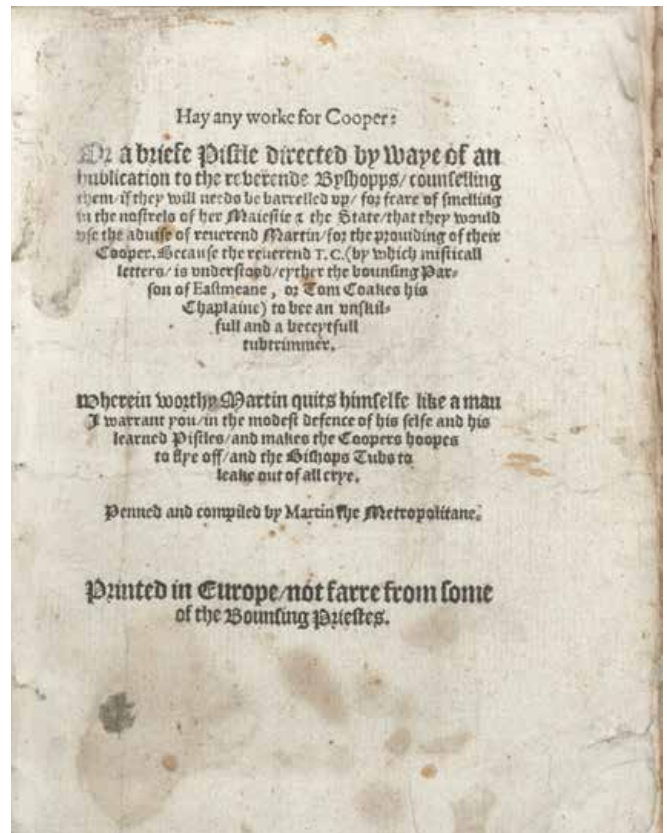 Hay any worke for Cooper:
Or a briefe Pistle directed by Waye of an
hublication to the reverende Byshopps/ counselling
them/ if they will needs be barrelled vp/ for feare of smelling
in the nostrels of her Maiestie & the State/ that they would
vse the aduise of reuerend Martin/ for the prouiding of their
Cooper. Because the reuerend T. C. (by which misticall
letters/ is vnderstood/ eyther the bounsing Par-
son of Eastmeane, or Tom Coakes his
Chaplaine) to bee an vnskil-
full and a beceytfull
tubtrimmer.
Wherein worthy Martin quits himselfe like a man
I warrant you/ in the modest defence of his selfe and his
learned Pistles/ and makes the Coopers hoopes
to flye off/ and the Bishops Tubs to
leake out of all crye.
Penned and compiled by Martin the Metropolitane.
Printed in Europe/ not farre from some
of the Bounsing Priestes.